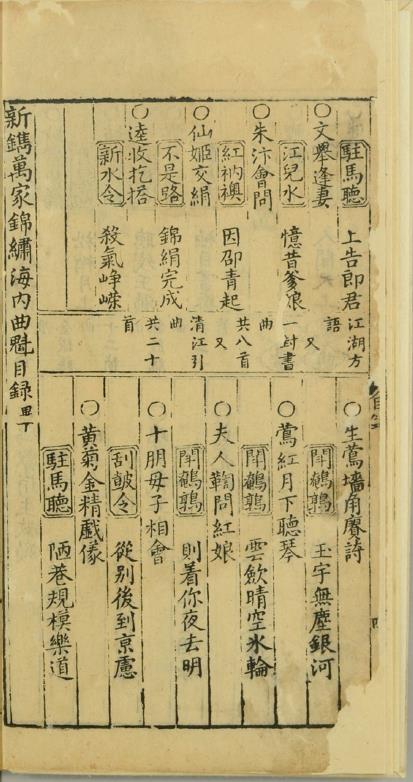 駐馬聽 上告郎君
○文舉逢妻
江兒水 憶昔爹娘
○朱汴會問
紅衲襖 因邵青起
○仙姬交絹
不是路 錦絹完成
○逵收挖搭
新水令 殺氣崢嶸
江湖方語 又
一封書曲 共八首 又
清江引曲 共二十首
○生鶯墻角賡詩
鬪鵪鶉 玉宇無塵銀河
○鶯紅月下聽琴
鬪鵪鶉 雲歛晴空氷輪
○夫人鞫問紅娘
鬪鵪鶉 則着你夜去明
○十朋母子相會
刮皷令 從別後到京慮
○黃菊金精戲儀
駐馬聽 陋巷規模樂道
新鐫萬家錦繡海內曲魁目錄畢